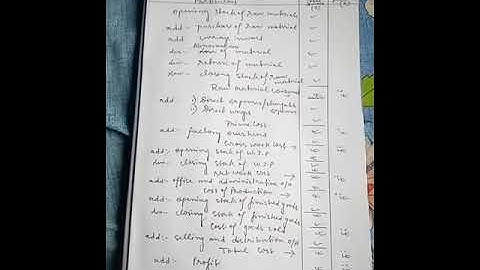 Particulars
opening stock of Raw materials
add:- purchase of Raw material
add carriage inward
Abnormal
less:- loss of material
less:- return of material
less:- closing stock of raw material
Raw material consumed
add 1) Direct expenses/chargeable expenses
2) Direct wages
Prime Cost
add:- factory overhead
Gross work cost →
add:- opening stock of W.I.P
less closing stock of W.I.P
Net work cost →
add:- office and administration o/h
Cost of Production →
add:- opening stock of finished goods
less- closing stock of finished goods
Cost of goods sold
add:- selling and distribution o/h
Total Cost →
add:- Profit